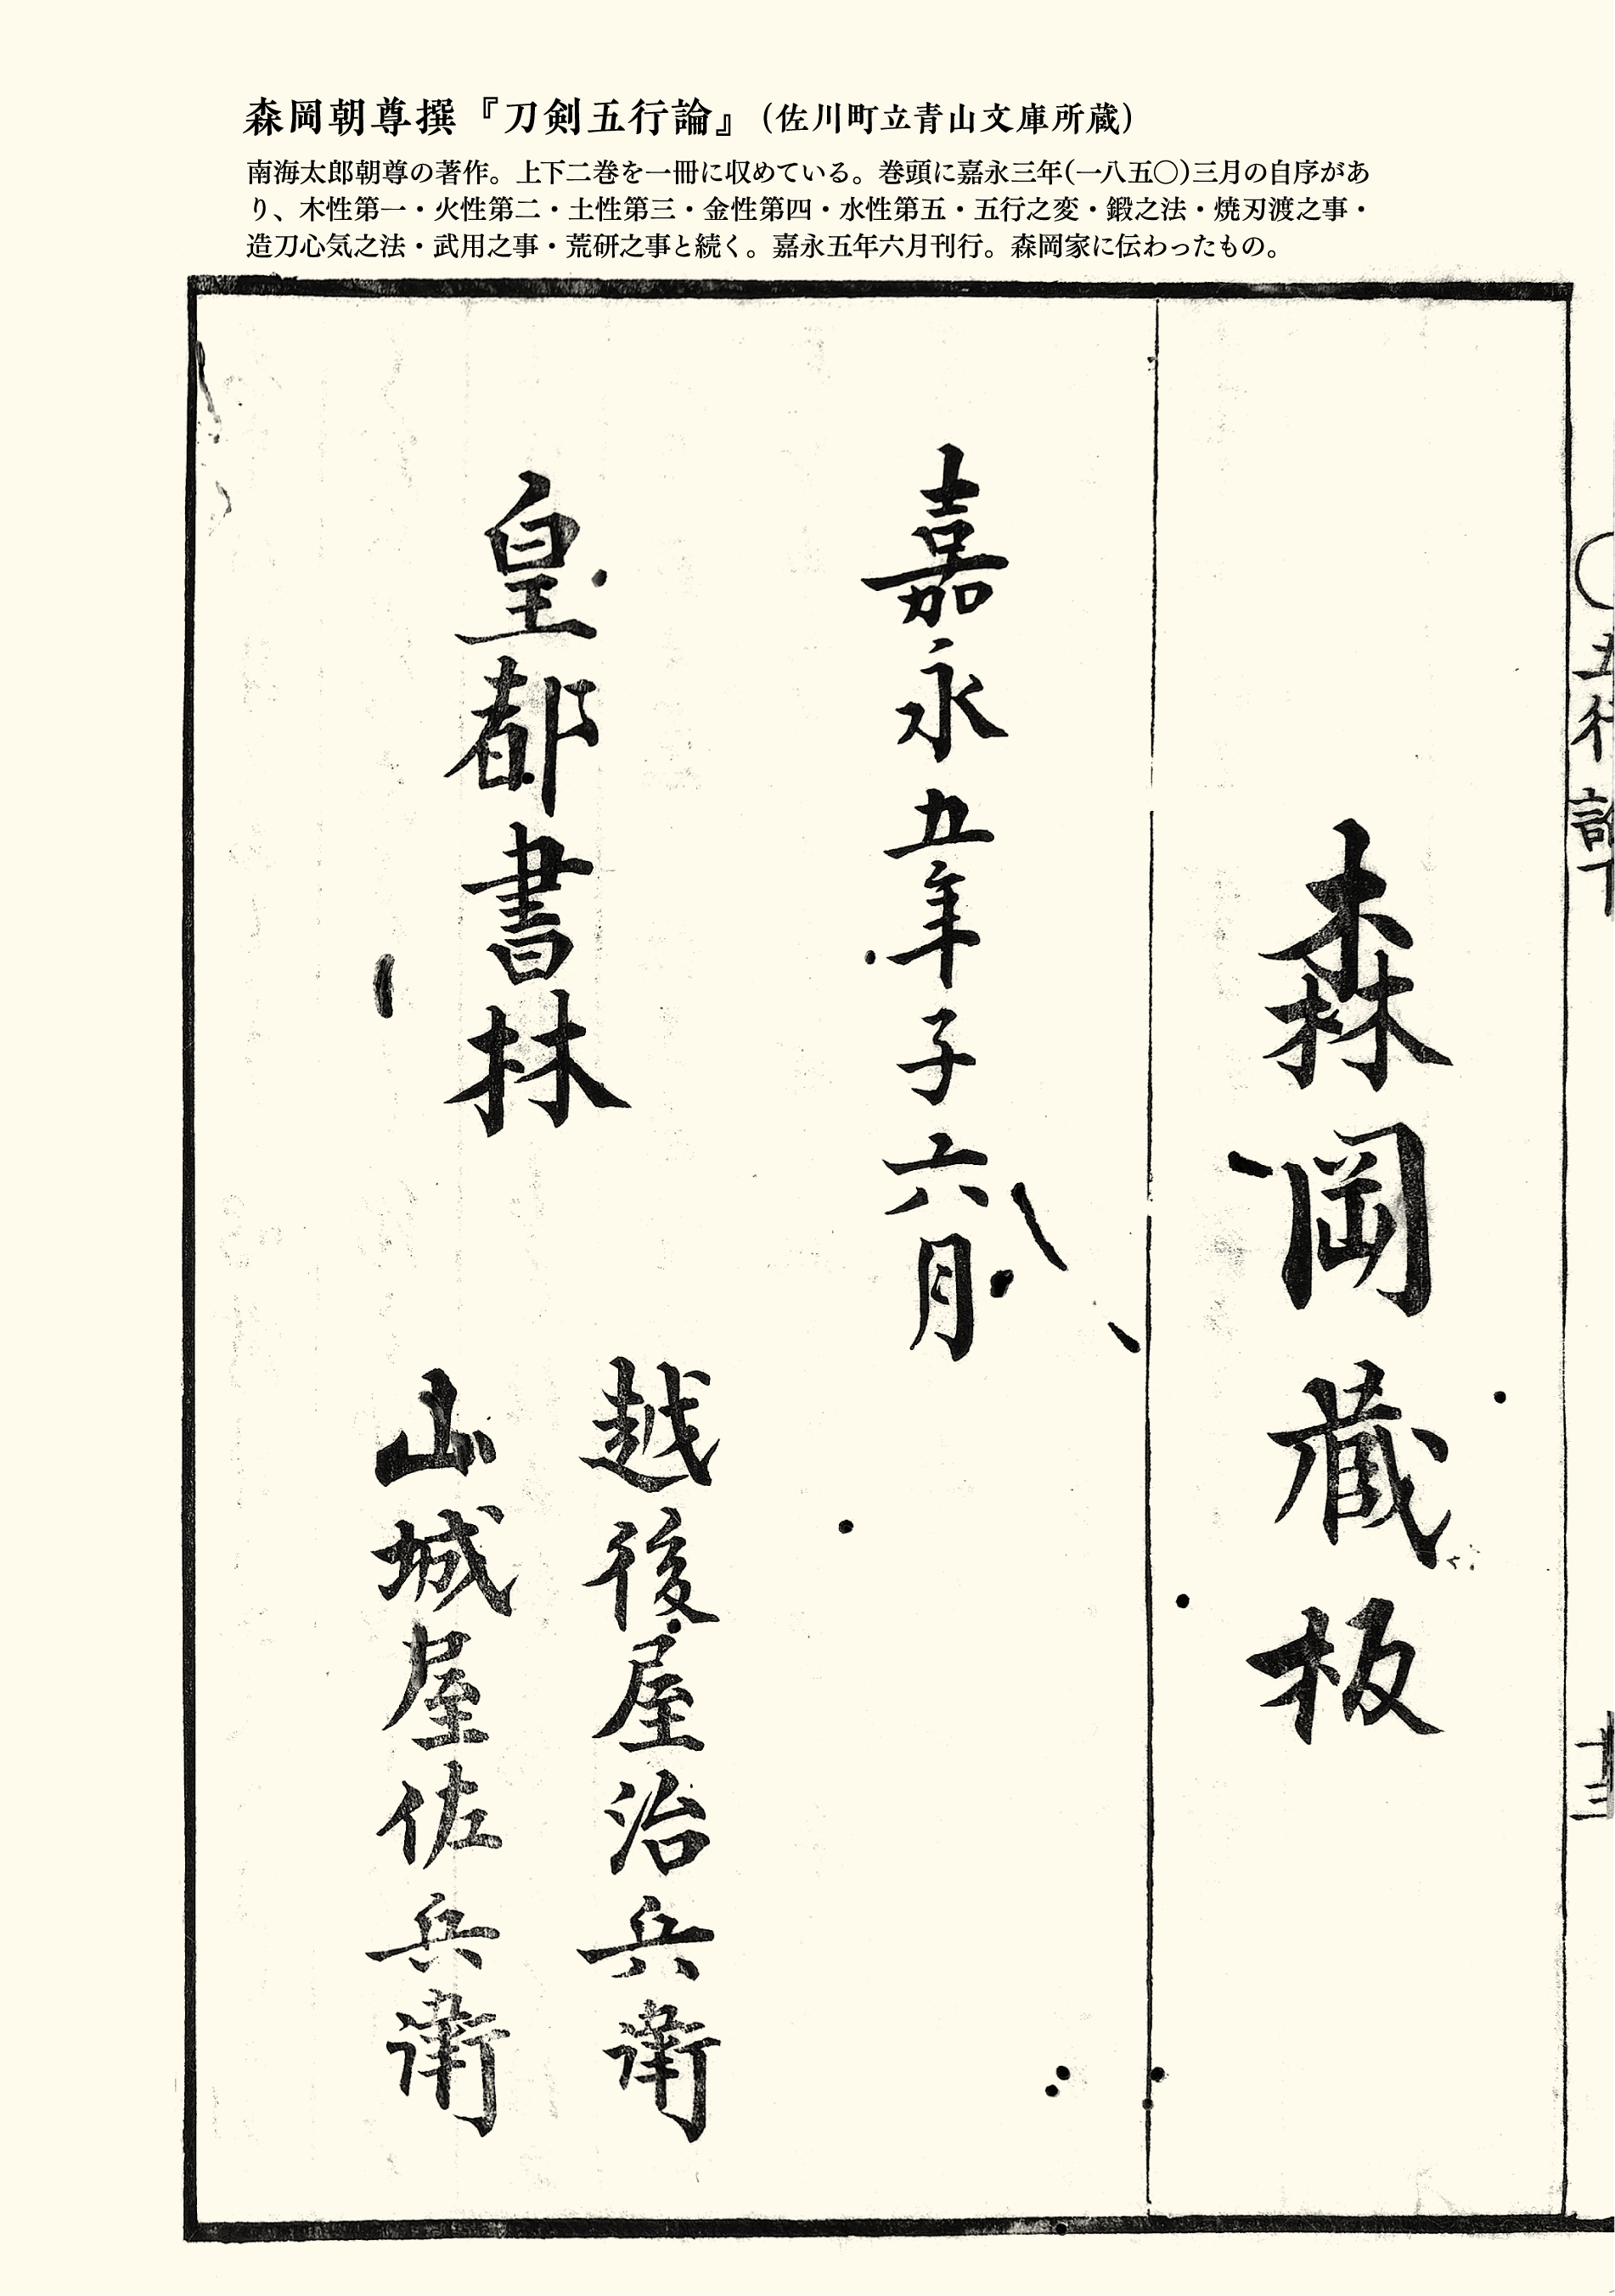 森岡朝尊撰『刀剣五行論』(佐川町立青山文庫所蔵)
南海太郎朝尊の著作。上下二巻を一冊に収めている。巻頭に嘉永三年(一八五〇)三月の自序があ
り、木性第一・火性第二・土性第三・金性第四・水性第五・五行之変・鍛之法・焼刃渡之事・
造刀心気之法・武用之事・荒研之事と続く。嘉永五年六月刊行。森岡家に伝わったもの。
〇五行論下
廿三
森岡蔵板
嘉永五年子六月
皇都書林
越後屋治兵衛
山城屋佐兵衛